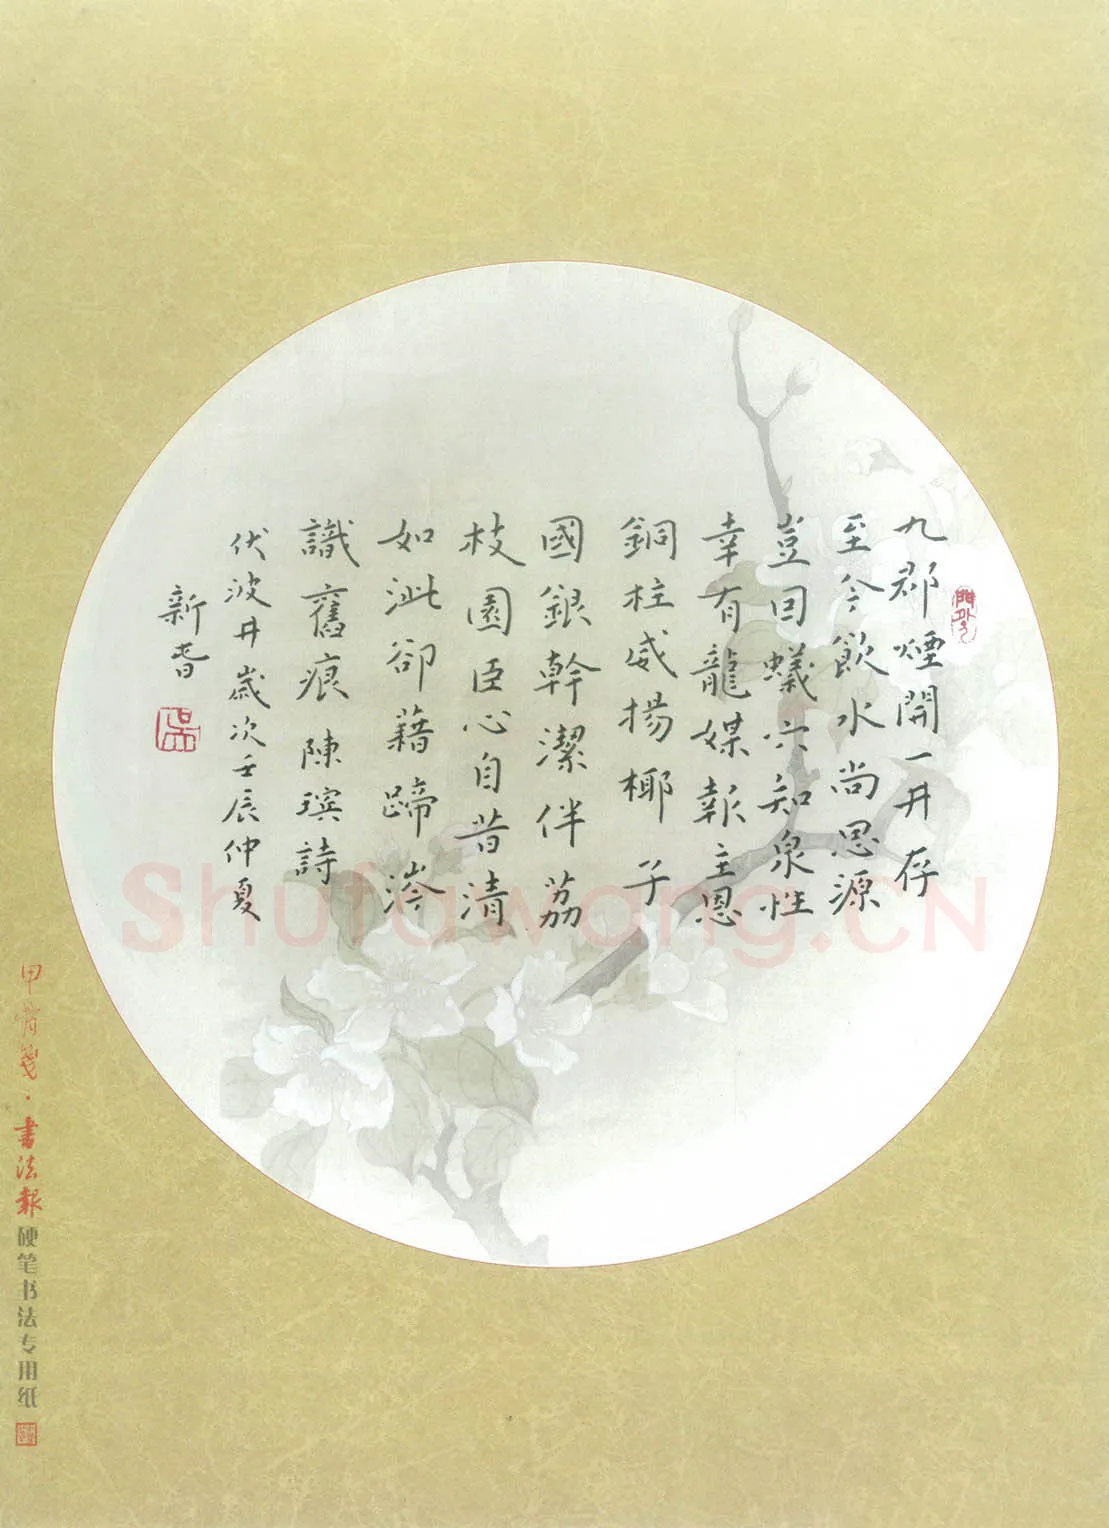 九郡煙開一井存
至今飲水尚思源
豈因蟻穴知泉性
幸有龍媒報主恩
銅柱威揚椰子
國銀幹潔伴荔
枝園臣心自昔清
如泚卻藉蹄涔
識舊痕 陳璸詩
伏波井歲次壬辰仲夏
新
甲骨箋·書法報硬笔书法专用纸
Shufawang.CN